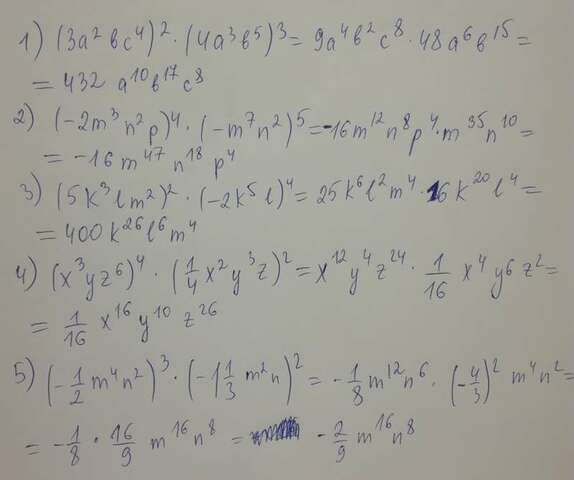 1) (3a²bc⁴)² · (4a³b⁵)³ = 9a⁴b²c⁸ · 48a⁶b¹⁵ =
= 432 a¹⁰b¹⁷c⁸
2) (-2m³n²p)⁴ · (-m⁷n²)⁵ = -16m¹²n⁸p⁴ · m³⁵n¹⁰ =
= -16m⁴⁷n¹⁸p⁴
3) (5k³lm²)² · (-2k⁵l)⁴ = 25k⁶l²m⁴ · 16k²⁰l⁴ =
= 400k²⁶l⁶m⁴
4) (x³yz⁶)⁴ · (1/4 x²y³z)² = x¹²y⁴z²⁴ · 1/16 x⁴y⁶z² =
= 1/16 x¹⁶y¹⁰z²⁶
5) (-1/2 m⁴n²)³ · (-1 1/3 m²n)² = -1/8 m¹²n⁶ · (-4/3)² m⁴n² =
= -1/8 · 16/9 m¹⁶n⁸ = -2/9 m¹⁶n⁸